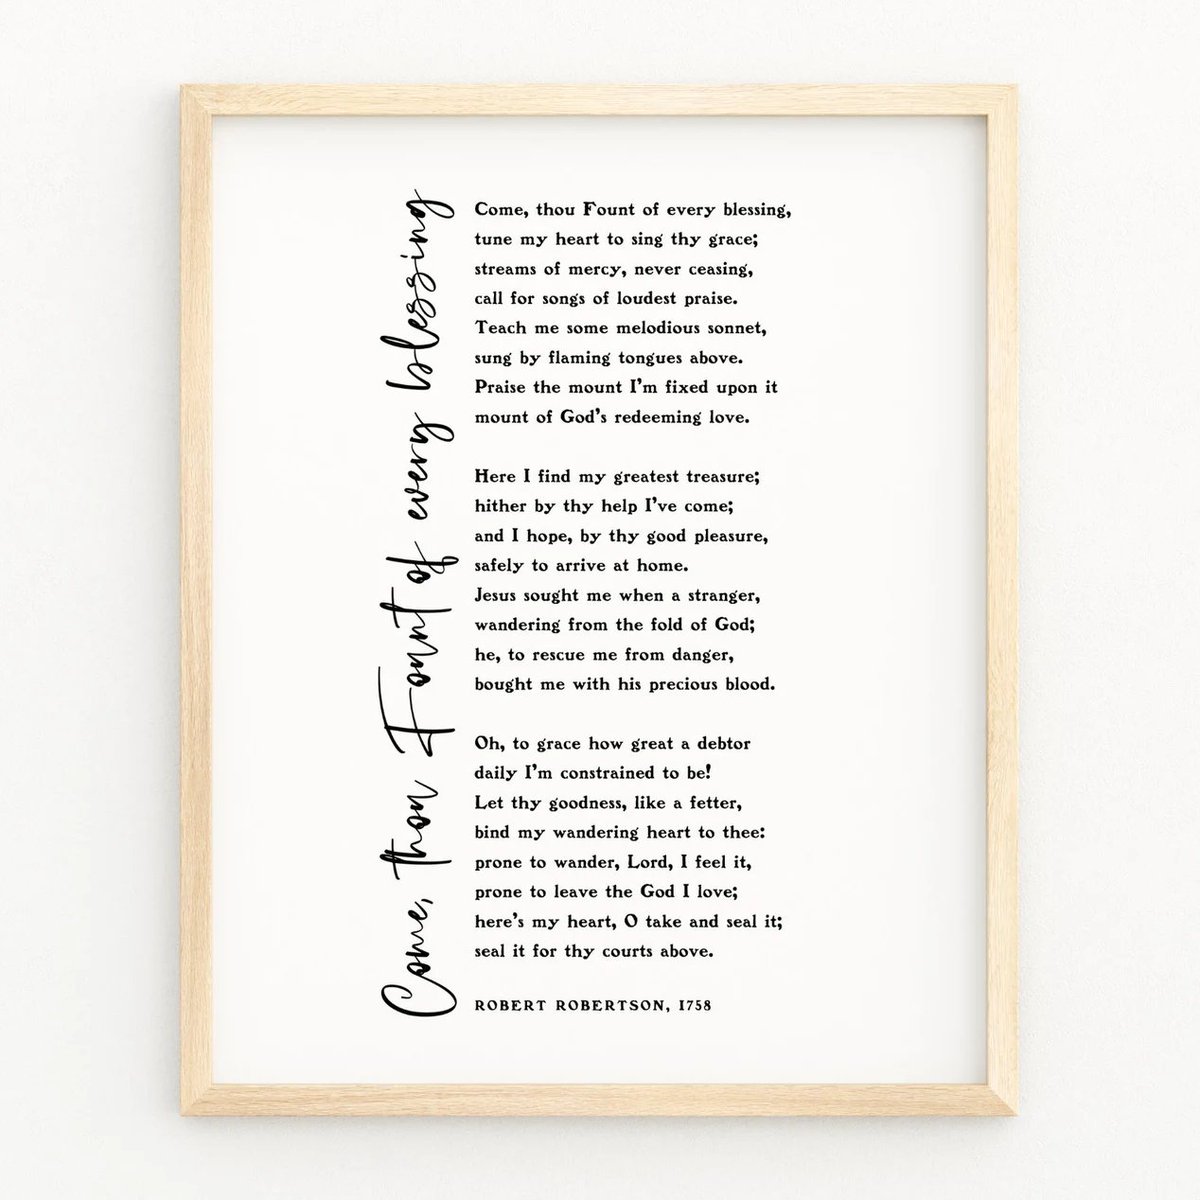 Come, thou Fount of every blessing
Come, thou Fount of every blessing,
tune my heart to sing thy grace;
streams of mercy, never ceasing,
call for songs of loudest praise.
Teach me some melodious sonnet,
sung by flaming tongues above.
Praise the mount I'm fixed upon it
mount of God's redeeming love.
Here I find my greatest treasure;
hither by thy help I've come;
and I hope, by thy good pleasure,
safely to arrive at home.
Jesus sought me when a stranger,
wandering from the fold of God;
he, to rescue me from danger,
bought me with his precious blood.
Oh, to grace how great a debtor
daily I'm constrained to be!
Let thy goodness, like a fetter,
bind my wandering heart to thee:
prone to wander, Lord, I feel it,
prone to leave the God I love;
here's my heart, O take and seal it;
seal it for thy courts above.
ROBERT ROBERTSON, 1758